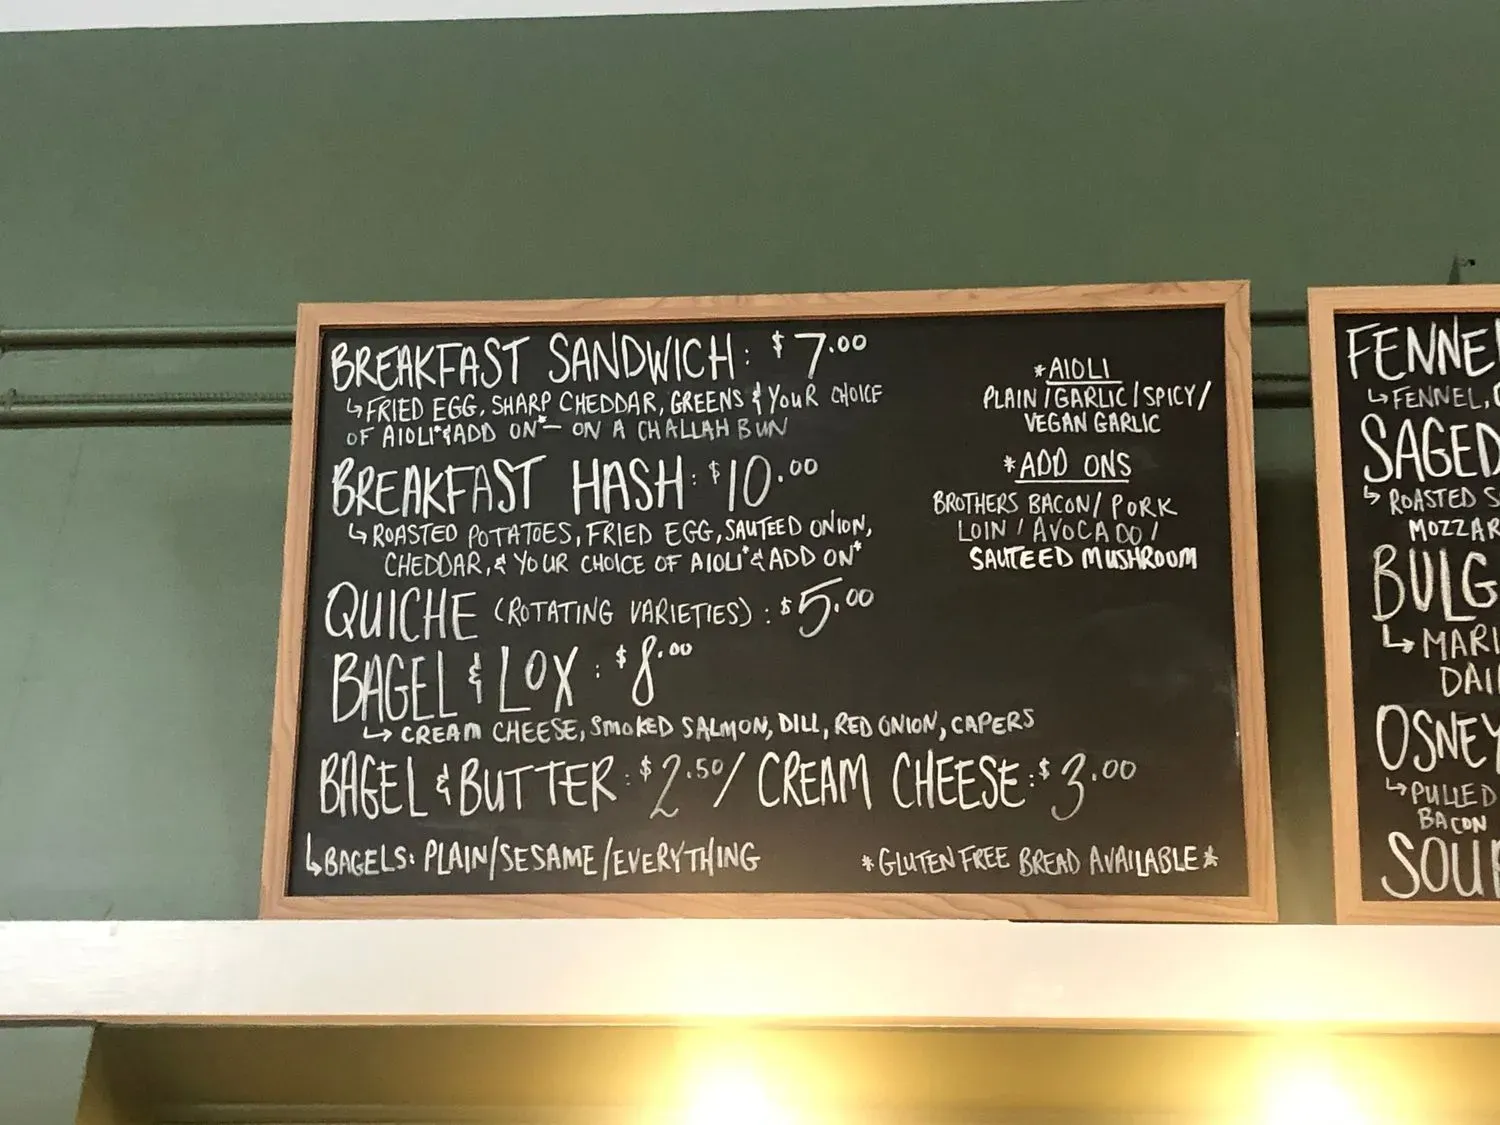 BREAKFAST SANDWICH: $7.00
↳FRIED EGG, SHARP CHEDDAR, GREENS & YOUR CHOICE
OF AIOLI*& ADD ON*— ON A CHALLAH BUN
BREAKFAST HASH: $10.00
↳ROASTED POTATOES, FRIED EGG, SAUTEED ONION,
CHEDDAR, & YOUR CHOICE OF AIOLI*& ADD ON*
QUICHE (ROTATING VARIETIES): $5.00
BAGEL & LOX: $8.00
↳CREAM CHEESE, SMOKED SALMON, DILL, RED ONION, CAPERS
BAGEL & BUTTER: $2.50/ CREAM CHEESE: $3.00
↳BAGELS: PLAIN/SESAME/EVERYTHING
*GLUTEN FREE BREAD AVAILABLE*
*AIOLI
PLAIN/GARLIC/SPICY/
VEGAN GARLIC
*ADD ONS
BROTHERS BACON/ PORK
LOIN / AVOCADO /
SAUTEED MUSHROOM
FENNE
↳FENNEL,
SAGED
↳ROASTED S
MOZZAR
BULG
↳MARI
DAI
OSNEY
↳PULLED
BACON
SOUP